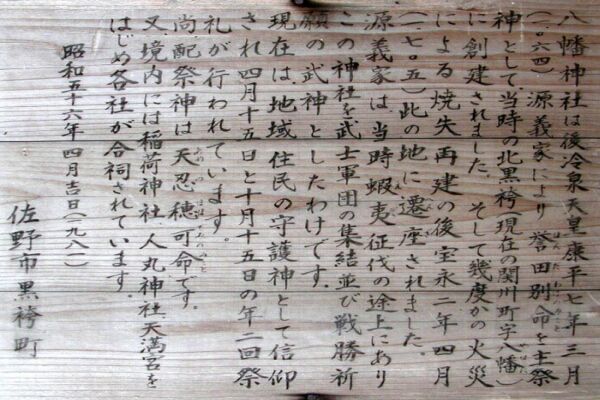 八幡神社は後冷泉天皇康平七年三月
(一〇六四)源義家により誉田別命を主祭
神として当時の北黒袴(現在の関川町字八幡)
に創建されました。そして幾度かの火災
による焼失再建の後宝永二年四月
(一七〇五)此の地に遷座されました。
源義家は当時蝦夷征伐の途上にあり
この神社を武士軍団の集結並び戦勝祈
願の武神としたわけです。
現在は地域住民の守護神として信仰
され四月十五日と十月十五日の年二回祭
礼が行われています。
尚配祭神は天忍穂可命です。
又境内には稲荷神社、人丸神社、天満宮を
はじめ各社が合祠されています。
昭和五十六年四月吉日(一九八一)
佐野市黒袴町